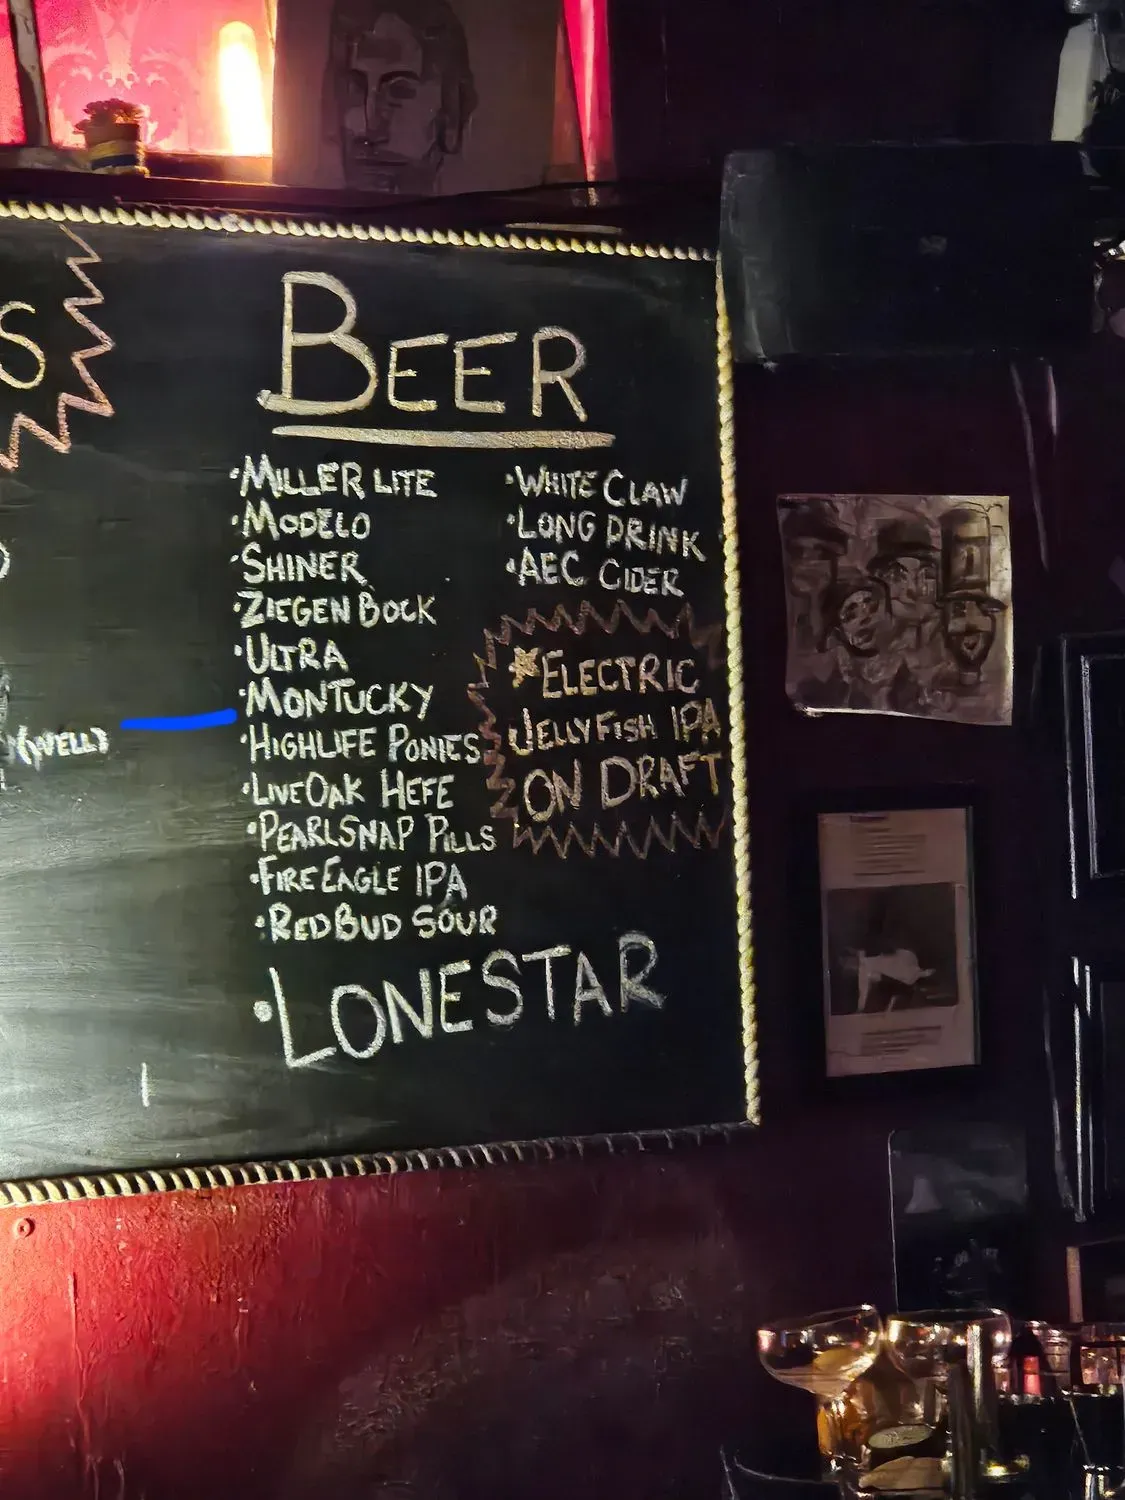 S
BEER
•MILLER LITE
•MODELO
•SHINER
•ZIEGEN BOCK
•ULTRA
•MONTUCKY
•HIGHLIFE PONIES
•LIVEOAK HEFE
•PEARLSNAP PILLS
•FIREEAGLE IPA
•REDBUD SOUR
•LONESTAR
•WHITE CLAW
•LONG DRINK
•AEC CIDER
*ELECTRIC
JELLYFISH IPA
ON DRAFT
(WELL)